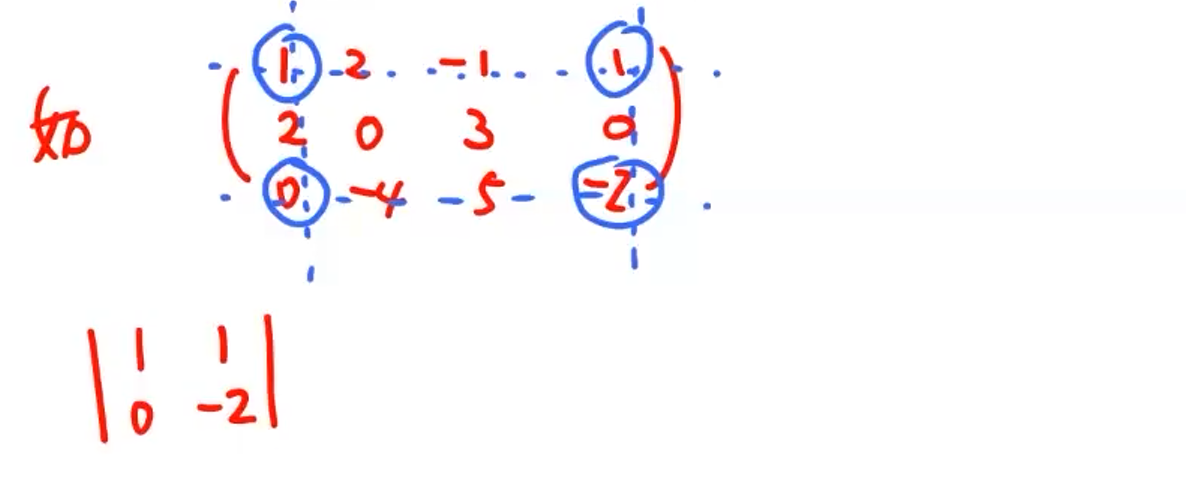 1 2 -1 1
如 2 0 3 0
0 -4 -5 -2
1 1
0 -2